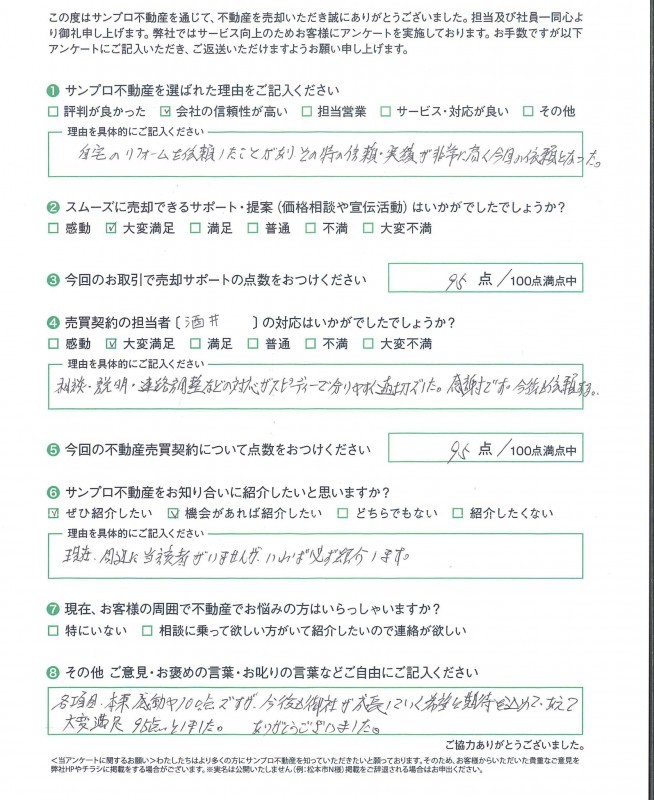 この度はサンプロ不動産を通じて、不動産を売却いただき誠にありがとうございました。担当及び社員一同心よ
り御礼申し上げます。弊社ではサービス向上のためお客様にアンケートを実施しております。お手数ですが以下
アンケートにご記入いただき、ご返送いただけますようお願い申し上げます。
❶ サンプロ不動産を選ばれた理由をご記入ください
□ 評判が良かった ☑ 会社の信頼性が高い □ 担当営業 □ サービス・対応が良い □ その他
理由を具体的にご記入ください
自宅のリフォームを依頼したことがありその時の信頼・実績が非常に高く今回の依頼となった。
❷ スムーズに売却できるサポート・提案（価格相談や宣伝活動）はいかがでしたでしょうか？
□ 感動 ☑ 大変満足 □ 満足 □ 普通 □ 不満 □ 大変不満
❸ 今回のお取引で売却サポートの点数をおつけください 95 点 /100点満点中
❹ 売買契約の担当者〔酒井 〕の対応はいかがでしたでしょうか？
□ 感動 ☑ 大変満足 □ 満足 □ 普通 □ 不満 □ 大変不満
理由を具体的にご記入ください
相談・説明・連絡調整などの対応がスピーディーで分りやすく適切でした。感謝です。今後も依頼する。
❺ 今回の不動産売買契約について点数をおつけください 95 点 /100点満点中
❻ サンプロ不動産をお知り合いに紹介したいと思いますか？
☑ ぜひ紹介したい ☑ 機会があれば紹介したい □ どちらでもない □ 紹介したくない
理由を具体的にご記入ください
現在、周辺に当該者がいませんが、いれば必ず紹介します。
❼ 現在、お客様の周囲で不動産でお悩みの方はいらっしゃいますか？
□ 特にいない □ 相談に乗って欲しい方がいて紹介したいので連絡が欲しい
❽ その他 ご意見・お褒めの言葉・お叱りの言葉などご自由にご記入ください
各項目、本来感動や100点ですが、今後も御社が成長していく希望と期待を込めて、あえて
大変満足 95点としました。 ありがとうございました。
ご協力ありがとうございました。
＜当アンケートに関するお願い＞わたしたちはより多くの方にサンプロ不動産を知っていただきたいと願っております。そのため、お客様からいただいた貴重なご意見を
弊社HPやチラシに掲載をする場合がございます。※実名は公開いたしません（例：松本市N様）掲載をご辞退される場合はお申出ください。